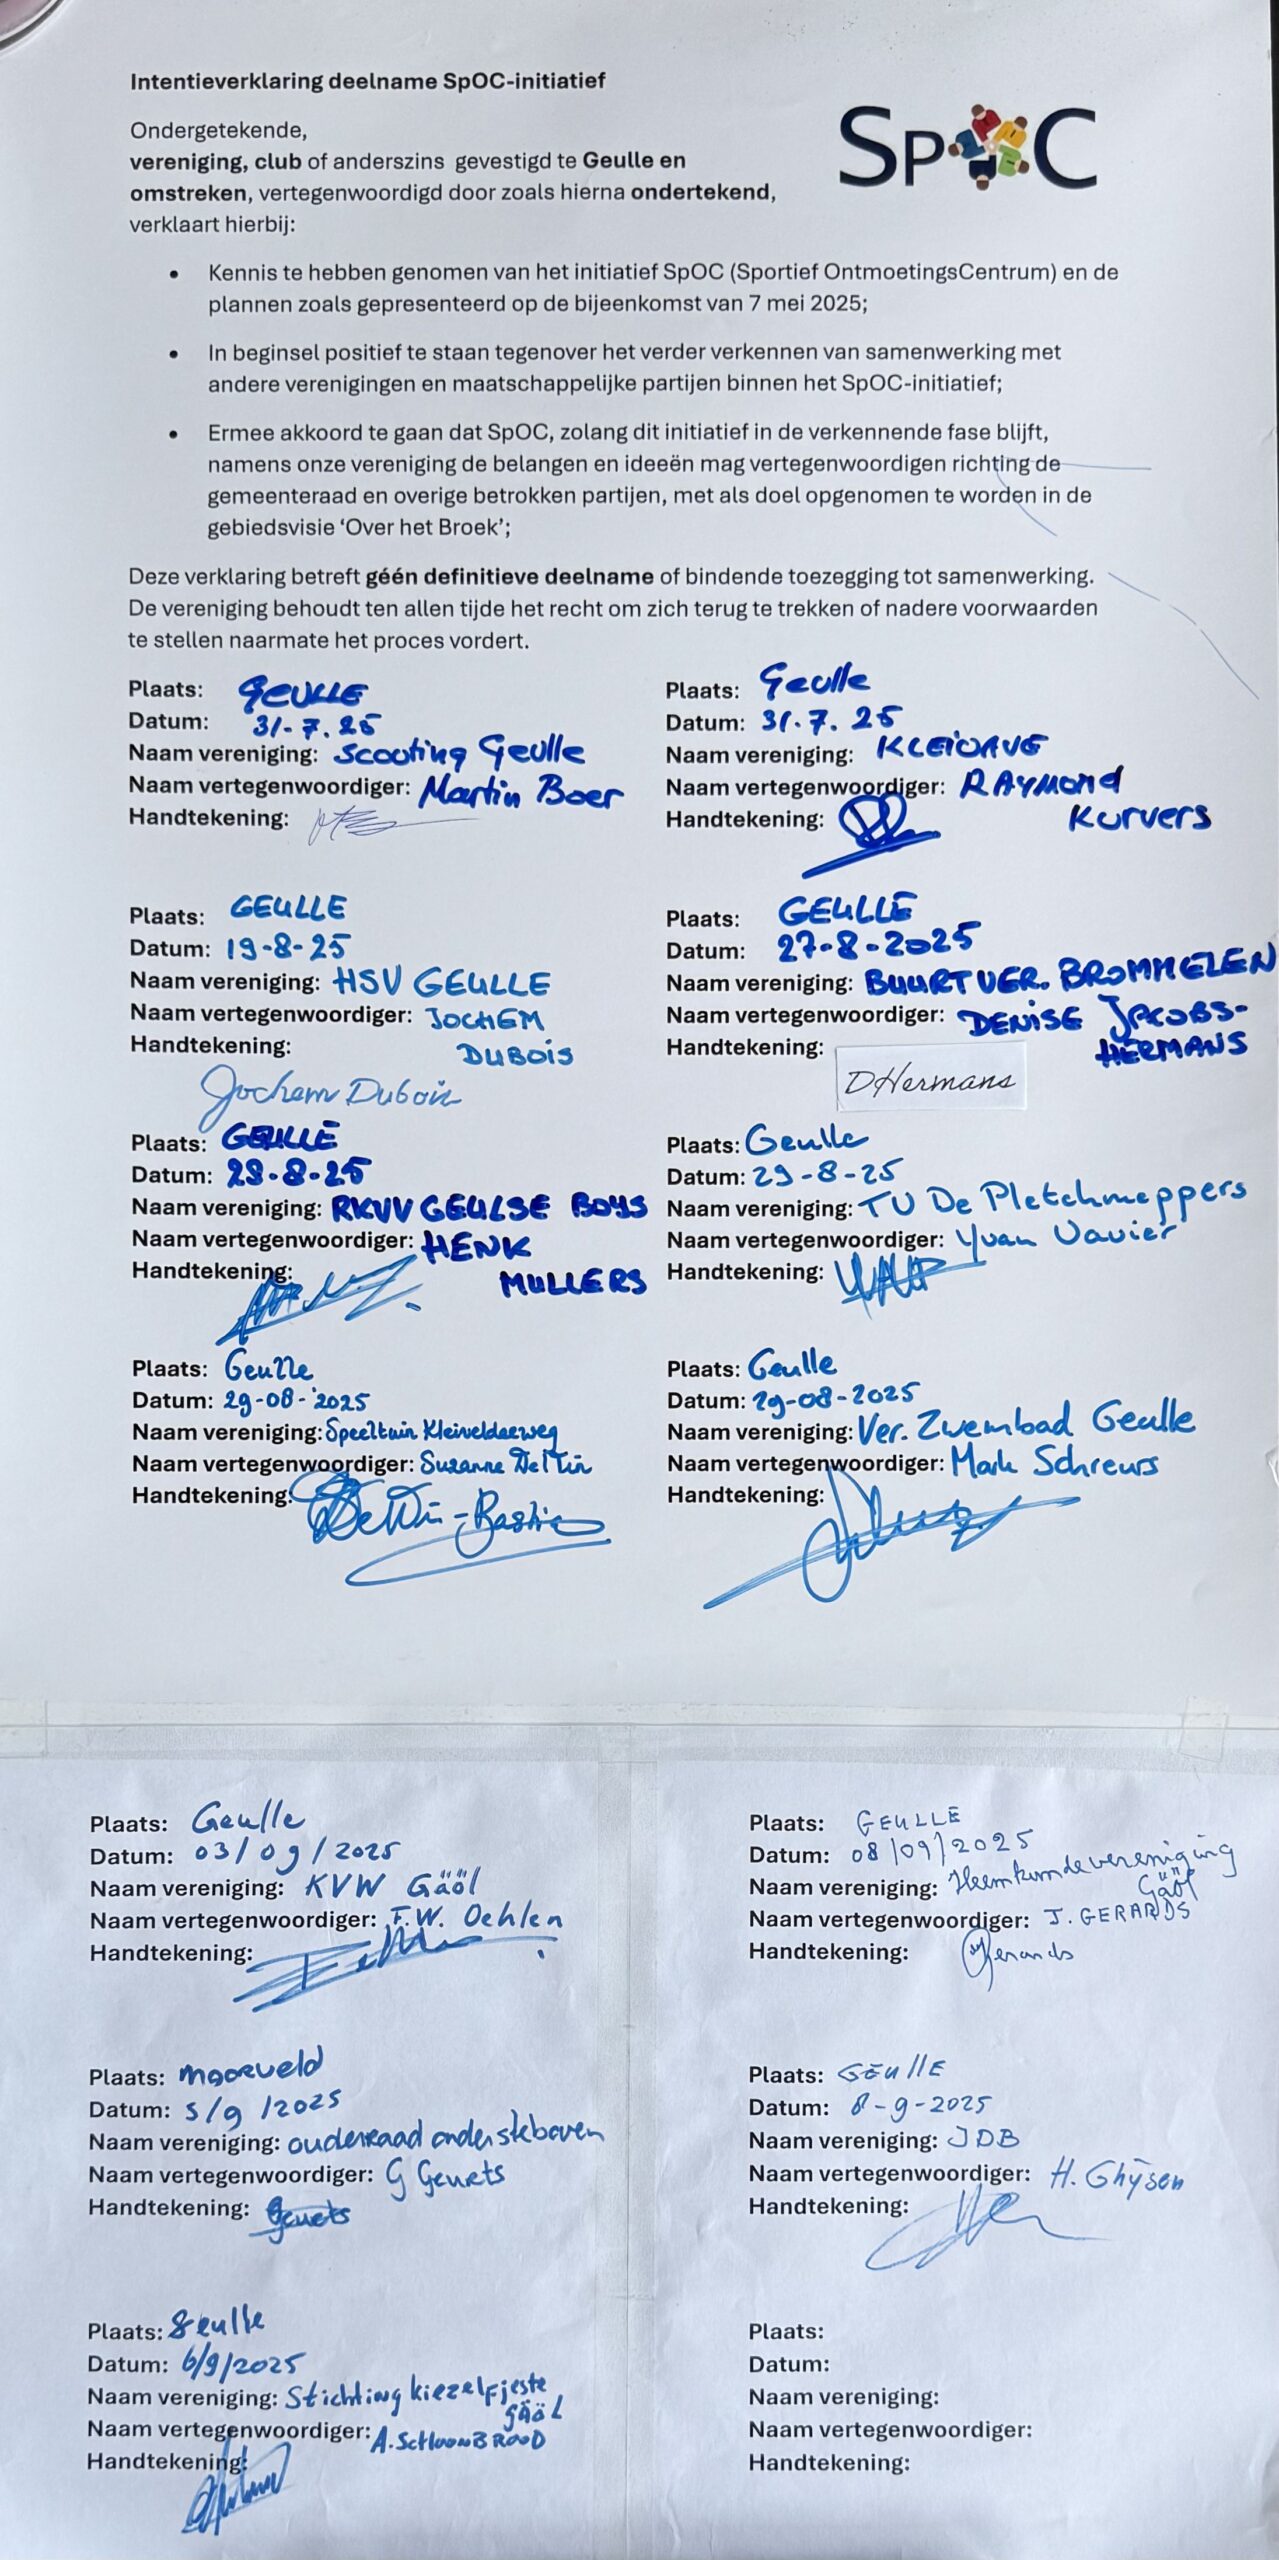 Intentieverklaring deelname SpOC-initiatief
Ondergetekende,
vereniging, club of anderszins gevestigd te Geulle en
omstreken, vertegenwoordigd door zoals hierna ondertekend,
verklaart hierbij:
SpOC
• Kennis te hebben genomen van het initiatief SpOC (Sportief OntmoetingsCentrum) en de
plannen zoals gepresenteerd op de bijeenkomst van 7 mei 2025;
• In beginsel positief te staan tegenover het verder verkennen van samenwerking met
andere verenigingen en maatschappelijke partijen binnen het SpOC-initiatief;
• Ermee akkoord te gaan dat SpOC, zolang dit initiatief in de verkennende fase blijft,
namens onze vereniging de belangen en ideeën mag vertegenwoordigen richting de
gemeenteraad en overige betrokken partijen, met als doel opgenomen te worden in de
gebiedsvisie ‘Over het Broek’;
Deze verklaring betreft géén definitieve deelname of bindende toezegging tot samenwerking.
De vereniging behoudt ten allen tijde het recht om zich terug te trekken of nadere voorwaarden
te stellen naarmate het proces vordert.
Plaats: GEULLE
Datum: 31-7.25
Naam vereniging: Scouting Geulle
Naam vertegenwoordiger: Martin Boer
Handtekening:
Plaats: Geulle
Datum: 31.7.25
Naam vereniging:
Naam vertegenwoordiger: RAYMOND
Kurvers
Handtekening:
Plaats: GEULLE
Datum: 19-8-25
Naam vereniging: HSV GEULLE
Naam vertegenwoordiger: JOCHEM
DUBOIS
Handtekening:
Jochem Dubois
Plaats: GEULLE
Datum: 27-8-2025
Naam vereniging: BUURTVER. BROMMELEN
Naam vertegenwoordiger: DENISE JACOBS-
HERMANS
Handtekening:
DHermans
Plaats: GEULLE
Datum: 28-8-25
Naam vereniging: RKVV GEULSE BOYS
Naam vertegenwoordiger: HENK
MULLERS
Handtekening:
Plaats: Geulle
Datum: 29-8-25
Naam vereniging: TV De Pletchmeppers
Naam vertegenwoordiger: Yvan Vavier
Handtekening:
Plaats: Geulle
Datum: 29-08-2025
Naam vereniging: Speeltuin
Naam vertegenwoordiger: Suzanne
Handtekening:
Plaats: Geulle
Datum: 29-08-2025
Naam vereniging: Ver. Zwembad Geulle
Naam vertegenwoordiger: Mark Schreurs
Handtekening:
Plaats: Geulle
Datum: 03/09/2025
Naam vereniging: KVW Gäöl
Naam vertegenwoordiger: F.W. Oehlen
Handtekening:
Plaats: GEULLE
Datum: 08/09/2025
Naam vereniging: Heemkundevereniging
Gäöl
Naam vertegenwoordiger: J. GERARDS
Handtekening: Gerards
Plaats: moorveld
Datum: 5/9/2025
Naam vereniging: ouderraad ondersteboven
Naam vertegenwoordiger: G Geurts
Handtekening: Geurts
Plaats: GEulle
Datum: 8-9-2025
Naam vereniging: JDB
Naam vertegenwoordiger: H. Ghijsen
Handtekening:
Plaats: Geulle
Datum: 6/9/2025
Naam vereniging: Stichting kiezelfjeste
gäöl
Naam vertegenwoordiger: A. SCHOONBROOD
Handtekening:
Plaats:
Datum:
Naam vereniging:
Naam vertegenwoordiger:
Handtekening: